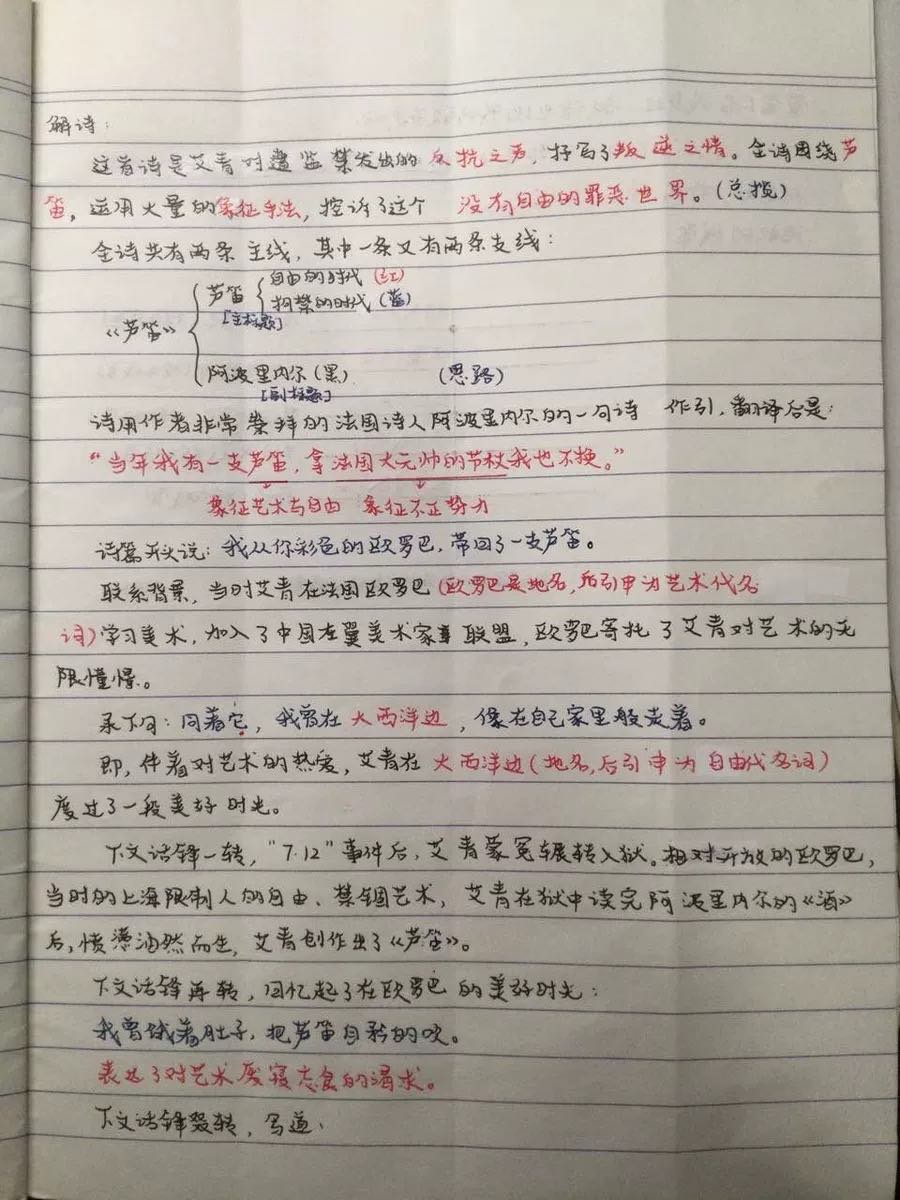 解诗：
这首诗是艾青对遭监禁发出的反抗之声，抒写了叛逆之情。全诗围绕芦
笛，运用大量的象征手法，控诉了这个 没有自由的罪恶世界。（总揽）
全诗共有两条主线，其中一条又有两条支线：
自由的时代（红）
芦笛
拘禁的时代（蓝）
[主标题]
《芦笛》
阿波里内尔（黑） （思路）
[副标题]
诗用作者非常崇拜的法国诗人阿波里内尔的一句诗 作引，翻译后是：
“当年我有一支芦笛，拿法国大元帅的节杖我也不换。”
象征艺术与自由 象征不正势力
诗篇开头说：我从你彩色的欧罗巴，带回了一支芦笛。
联系背景，当时艾青在法国欧罗巴（欧罗巴是地名，后引申为艺术代名
词）学习美术，加入了中国左翼美术家联盟，欧罗巴寄托了艾青对艺术的无
限憧憬。
承下句：同着它，我曾在大西洋边，像在自己家里般走着。
即，伴着对艺术的热爱，艾青在大西洋边（地名，后引申为自由代名词）
度过了一段美好时光。
下文话锋一转，“7.12”事件后，艾青蒙冤辗转入狱。相对开放的欧罗巴，
当时的上海限制人的自由、禁锢艺术，艾青在狱中读完阿波里内尔的《酒》
后，愤懑油然而生，艾青创作出了《芦笛》。
下文话锋再转，回忆起了在欧罗巴的美好时光：
我曾饿着肚子，把芦笛自矜的吹。
表达了对艺术废寝忘食的渴求。
下文话锋叕转，写道：